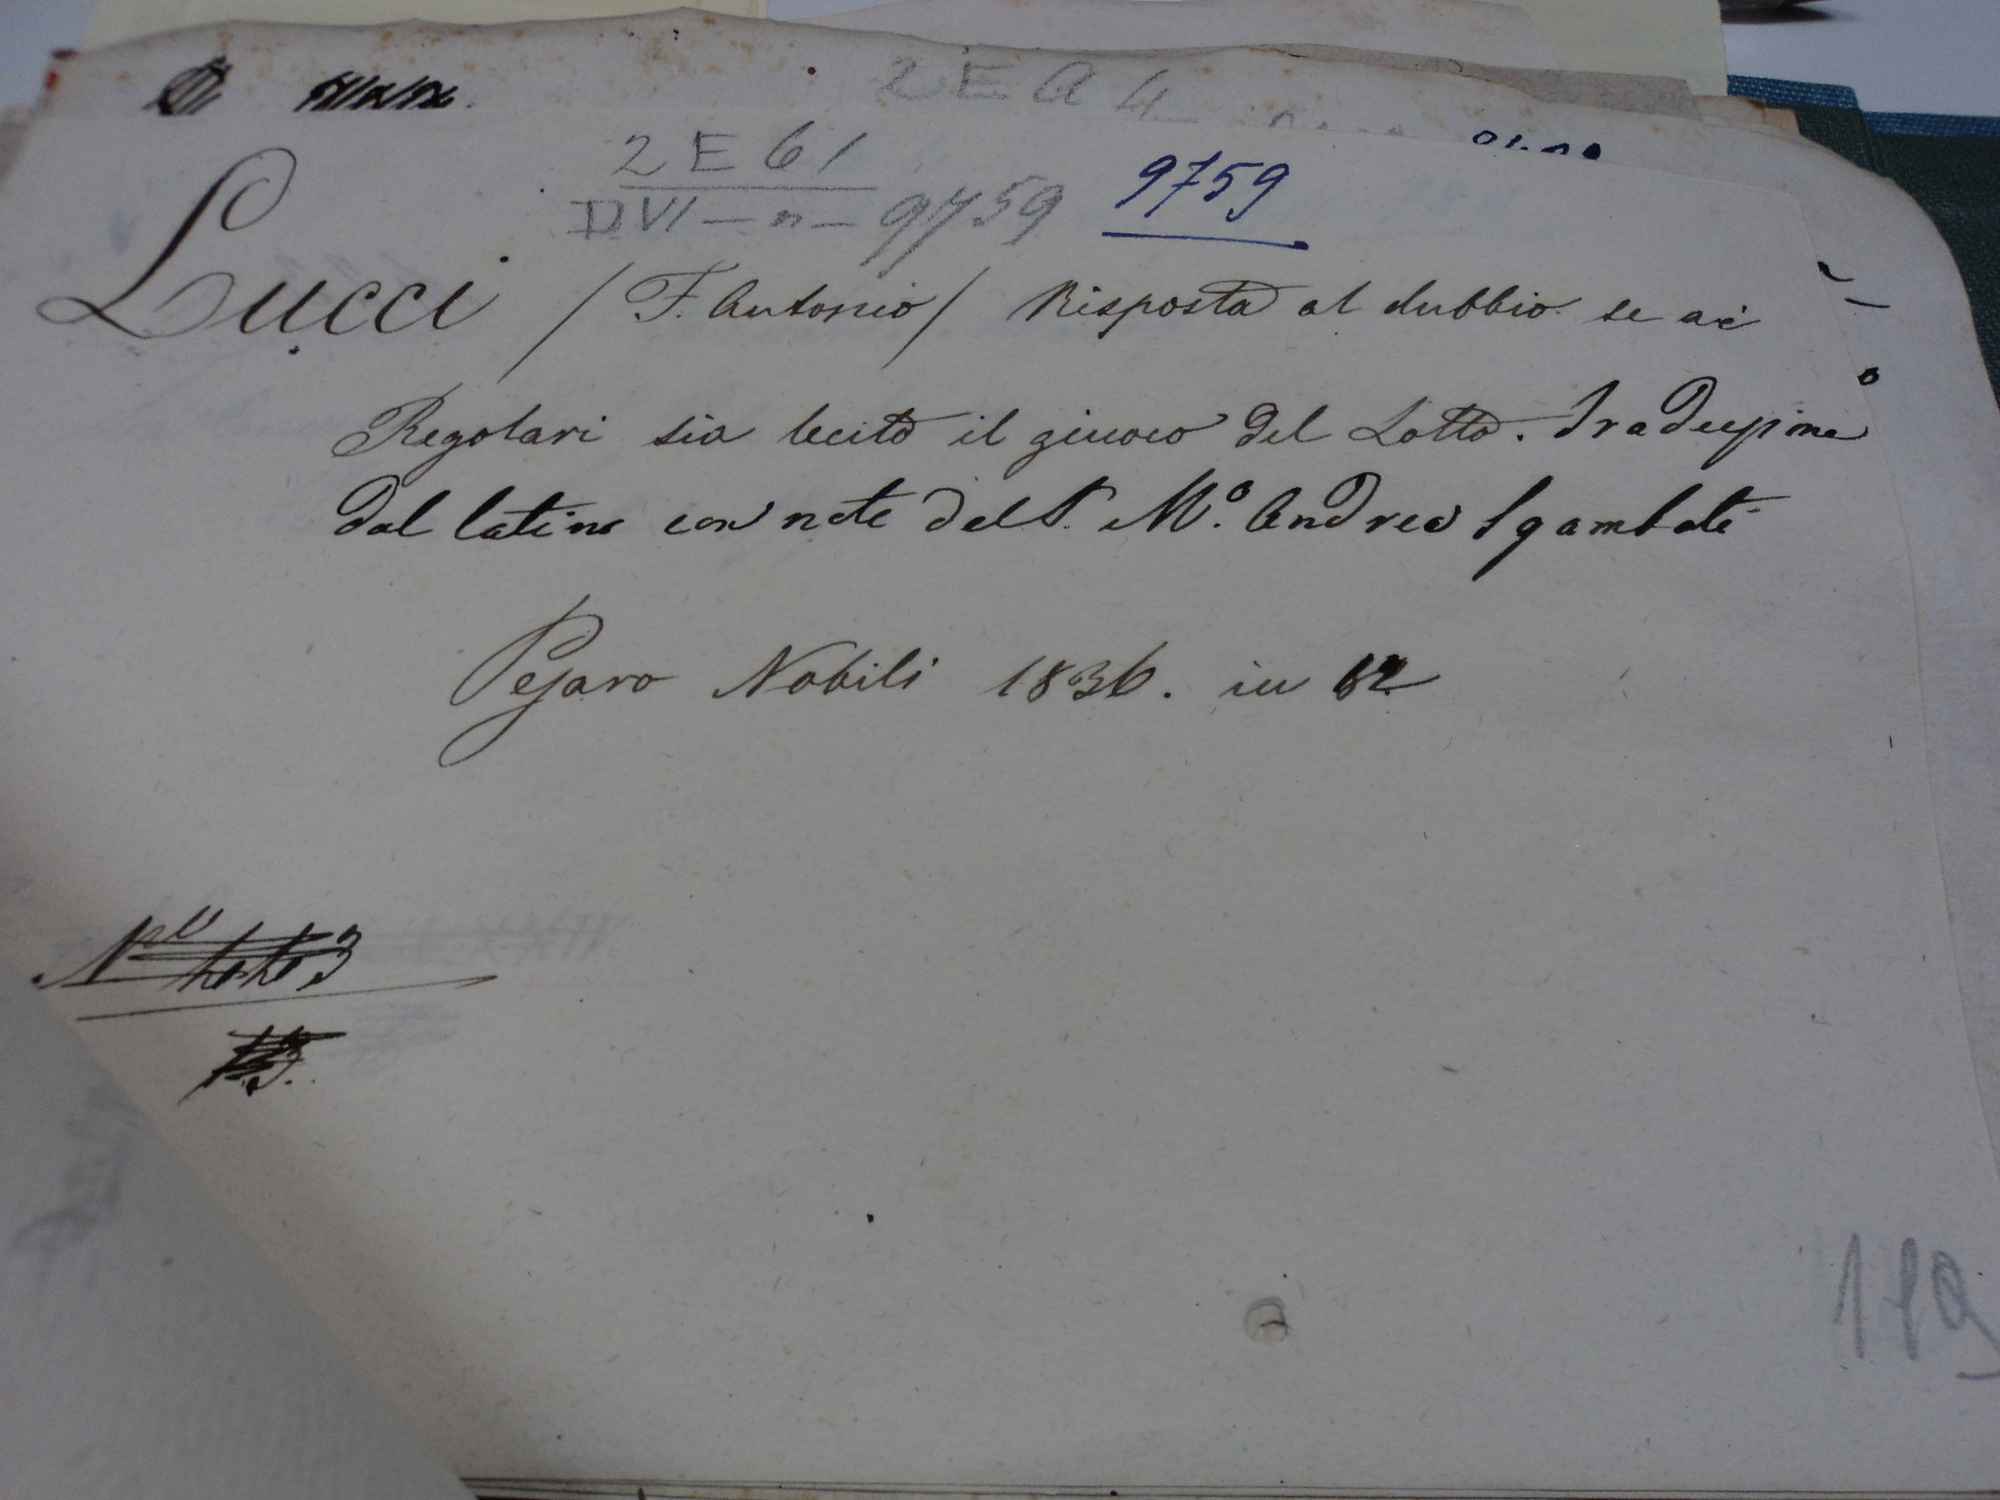 2 E a 4
2 E 61
D VI - n - 9759 9759
Lucci / F. Antonio / Risposta al dubbio se ai
Regolari sia lecito il giuoco del Lotto. Traduzione
dal latino con note del P. M.o Andrea Sgambati
Pesaro Nobili 1836. in 12
119